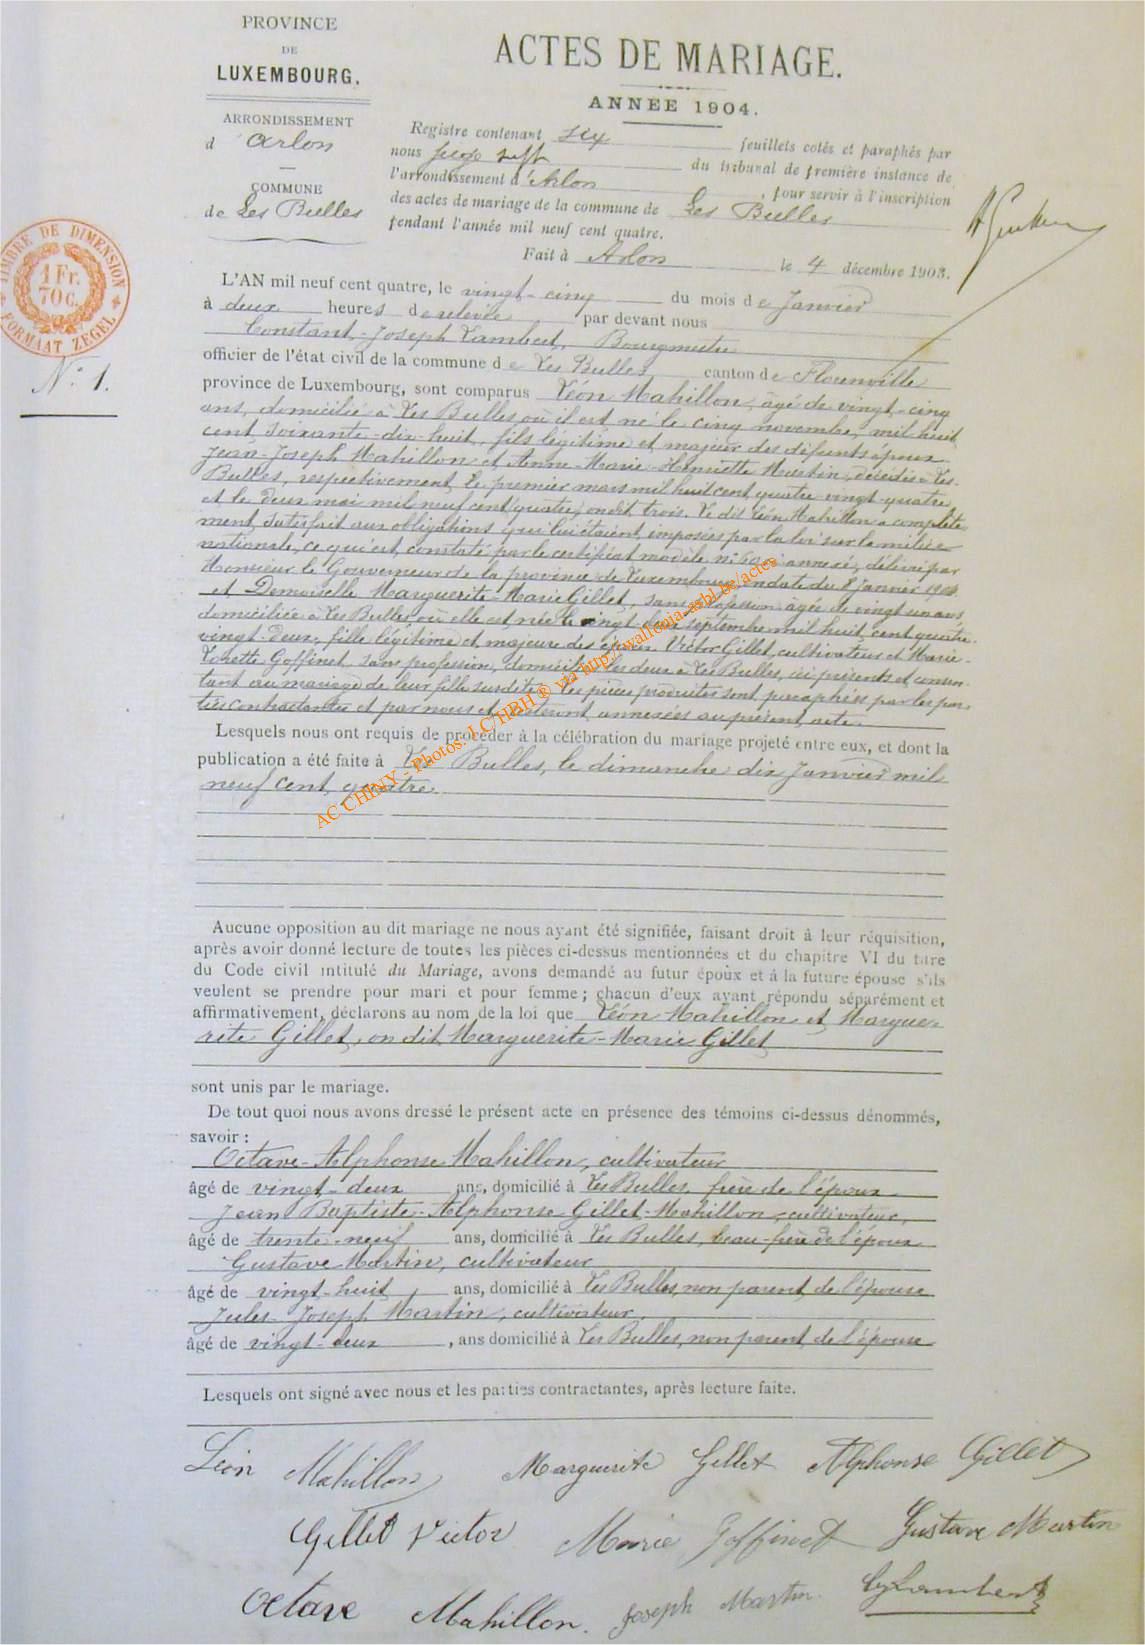 PROVINCE
DE
LUXEMBOURG.
ARRONDISSEMENT
d'Arlon
COMMUNE
de Les Bulles
TIMBRE DE DIMENSION
1 Fr.
70 C.
FORMAAT ZEGEL
N° 1.
ACTES DE MARIAGE.
ANNÉE 1904.
Registre contenant six feuillets cotés et paraphés par
nous juge suppt du tribunal de première instance de
l'arrondissement d'Arlon, pour servir à l'inscription
des actes de mariage de la commune de Les Bulles
pendant l'année mil neuf cent quatre.
Fait à Arlon le 4 décembre 1903.
L'AN mil neuf cent quatre, le vingt-cinq du mois de Janvier
à deux heures de relevée par devant nous
Constant-Joseph Lambert, Bourgmestre
officier de l'état civil de la commune de Les Bulles canton de Florenville
province de Luxembourg, sont comparus Léon Mahillon, âgé de vingt-cinq
ans, domicilié à Les Bulles où il est né le cinq novembre mil huit
cent soixante-dix-huit, fils légitime et majeur des défunts époux
Jean-Joseph Mahillon et Anne-Marie-Henriette Martin, décédés à Les
Bulles, respectivement le premier mars mil huit cent quatre-vingt-quatre
et le deux mai mil neuf cent quatre, on dit trois. Le dit Léon Mahillon a complète-
ment satisfait aux obligations qui lui étaient imposées par la loi sur la milice
nationale, ce qui est constaté par le certificat modèle n° annexé, délivré par
Monsieur le Gouverneur de la province de Luxembourg en date du 8 Janvier 1904
et Demoiselle Marguerite-Marie Gillet, sans profession âgée de vingt un ans,
domiciliée à Les Bulles, où elle est née le vingt- septembre mil huit cent quatre-
vingt-deux, fille légitime et majeure des époux Victor Gillet, cultivateur et Marie-
Josette Goffinet, sans profession, domiciliés les deux à Les Bulles, ici présents et consen-
tant au mariage de leur fille susdite. Les pièces produites sont paraphées par les par-
ties contractantes et par nous et resteront annexées au présent acte.
Lesquels nous ont requis de procéder à la célébration du mariage projeté entre eux, et dont la
publication a été faite à Les Bulles, le dimanche dix Janvier mil
neuf cent quatre.
AC CHINY - Photos. LC/HBH ® via http://wallonia-asbl.be/actes
Aucune opposition au dit mariage ne nous ayant été signifiée, faisant droit à leur réquisition,
après avoir donné lecture de toutes les pièces ci-dessus mentionnées et du chapitre VI du titre
du Code civil intitulé du Mariage, avons demandé au futur époux et à la future épouse s'ils
veulent se prendre pour mari et pour femme ; chacun d'eux ayant répondu séparément et
affirmativement, déclarons au nom de la loi que Léon Mahillon et Margue-
rite Gillet, on dit Marguerite-Marie Gillet
sont unis par le mariage.
De tout quoi nous avons dressé le présent acte en présence des témoins ci-dessus dénommés,
savoir :
Octave-Alphonse Mahillon, cultivateur
âgé de vingt-deux ans, domicilié à Les Bulles, frère de l'époux
Jean Baptiste-Alphonse Gillet-Mahillon, cultivateur,
âgé de trente-neuf ans, domicilié à Les Bulles, beau-frère de l'époux
Gustave Martin, cultivateur
âgé de vingt-huit ans, domicilié à Les Bulles, non parent de l'épouse
Jules-Joseph Martin, cultivateur,
âgé de vingt-deux, ans domicilié à Les Bulles, non parent de l'épouse
Lesquels ont signé avec nous et les parties contractantes, après lecture faite.
Léon Mahillon Marguerite Gillet Alphonse Gillet
Gillet Victor Marie Goffinet Gustave Martin
Octave Mahillon. Joseph Martin. Lambert